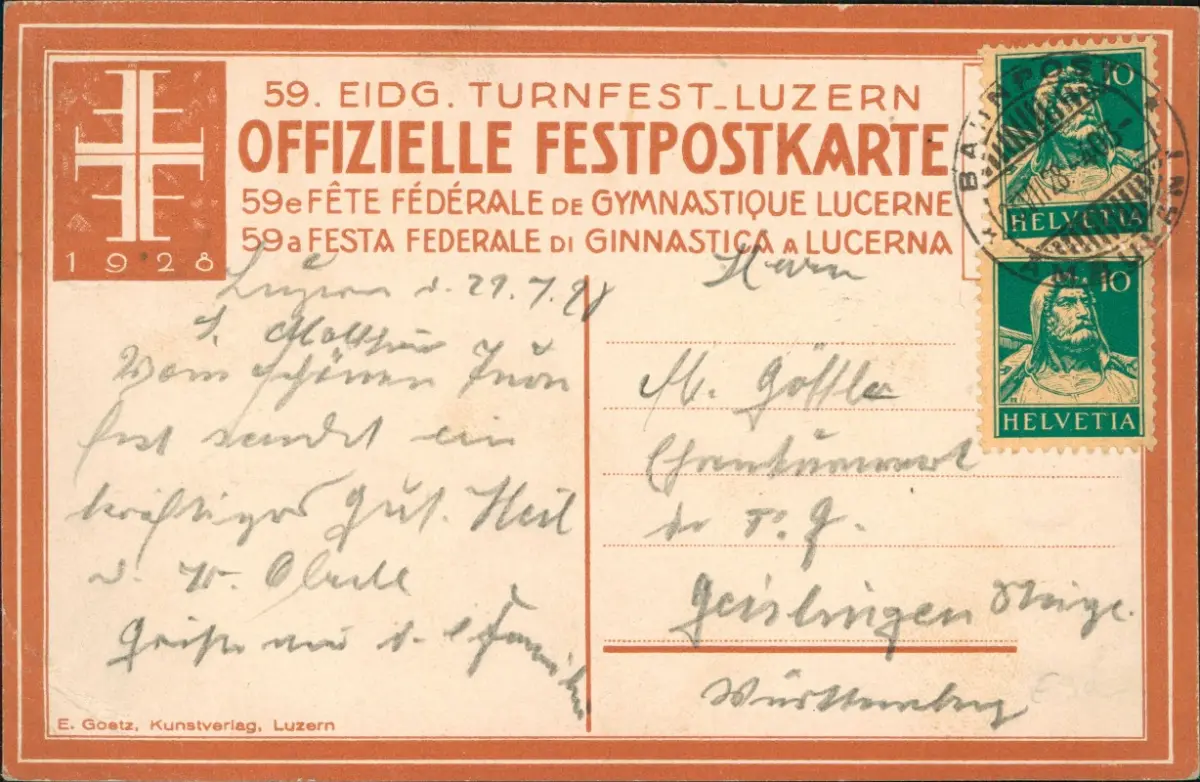 59. EIDG. TURNFEST-LUZERN
OFFIZIELLE FESTPOSTKARTE
59e FÊTE FÉDÉRALE DE GYMNASTIQUE LUCERNE
59a FESTA FEDERALE DI GINNASTICA A LUCERNA
1928
10
HELVETIA
10
HELVETIA
BAHNPOST
AMBULANT
Luzern d. 29.7.28
Vom schönen Turn
fest sendet ein
kräftiges Gut Heil
Grüße an d. Familie
Herrn
Göttle
Ehrenturnwart
der T. G.
Geislingen Steige.
Württemberg
E. Goetz, Kunstverlag, Luzern